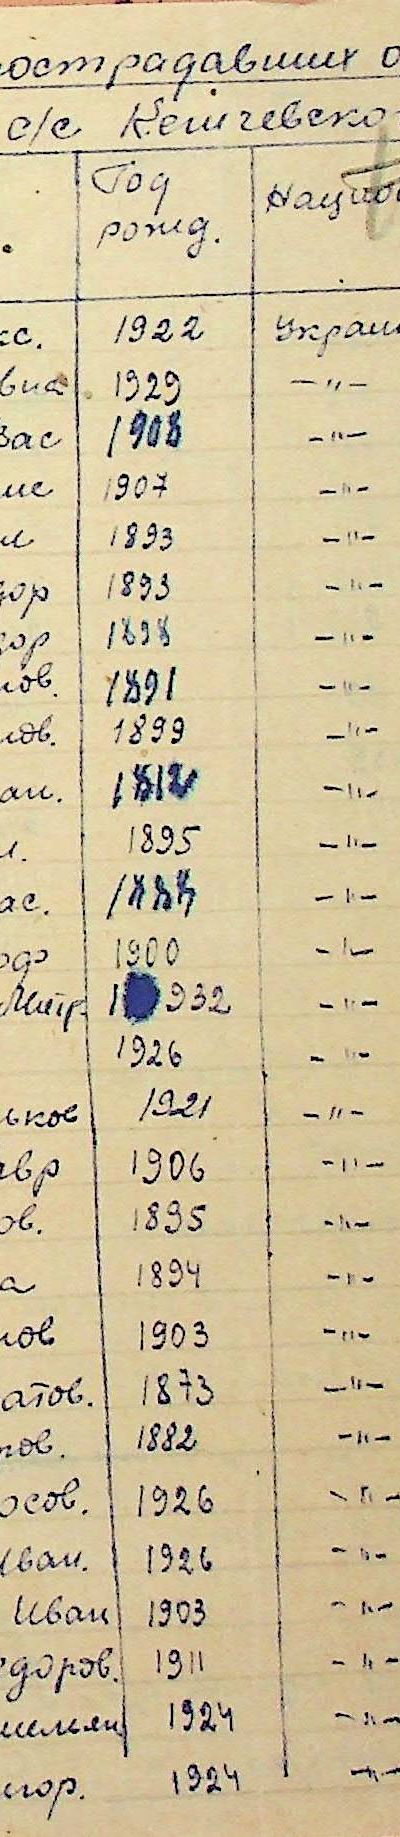 пострадавших о
с/с Кегичевско
Год Нацио
рожд.
кс. 1922 Украин
вна 1929 —"—
Вас 1908 —"—
ие 1907 —"—
и 1893 —"—
дор 1893 —"—
дор 1898 —"—
нов. 1891 —"—
нов. 1899 —"—
ан. —"—
и. 1895 —"—
ас. —"—
оф 1900 —"—
Митр. 1932 —"—
1926 —"—
ьков 1921 —"—
авр 1906 —"—
ов. 1895 —"—
а 1894 —"—
нов 1903 —"—
атов. 1873 —"—
ков. 1882 —"—
осов. 1926 —"—
Иван. 1926 —"—
Иван 1903 —"—
едоров. 1911 —"—
мельян 1924 —"—
игор. 1924 —"—